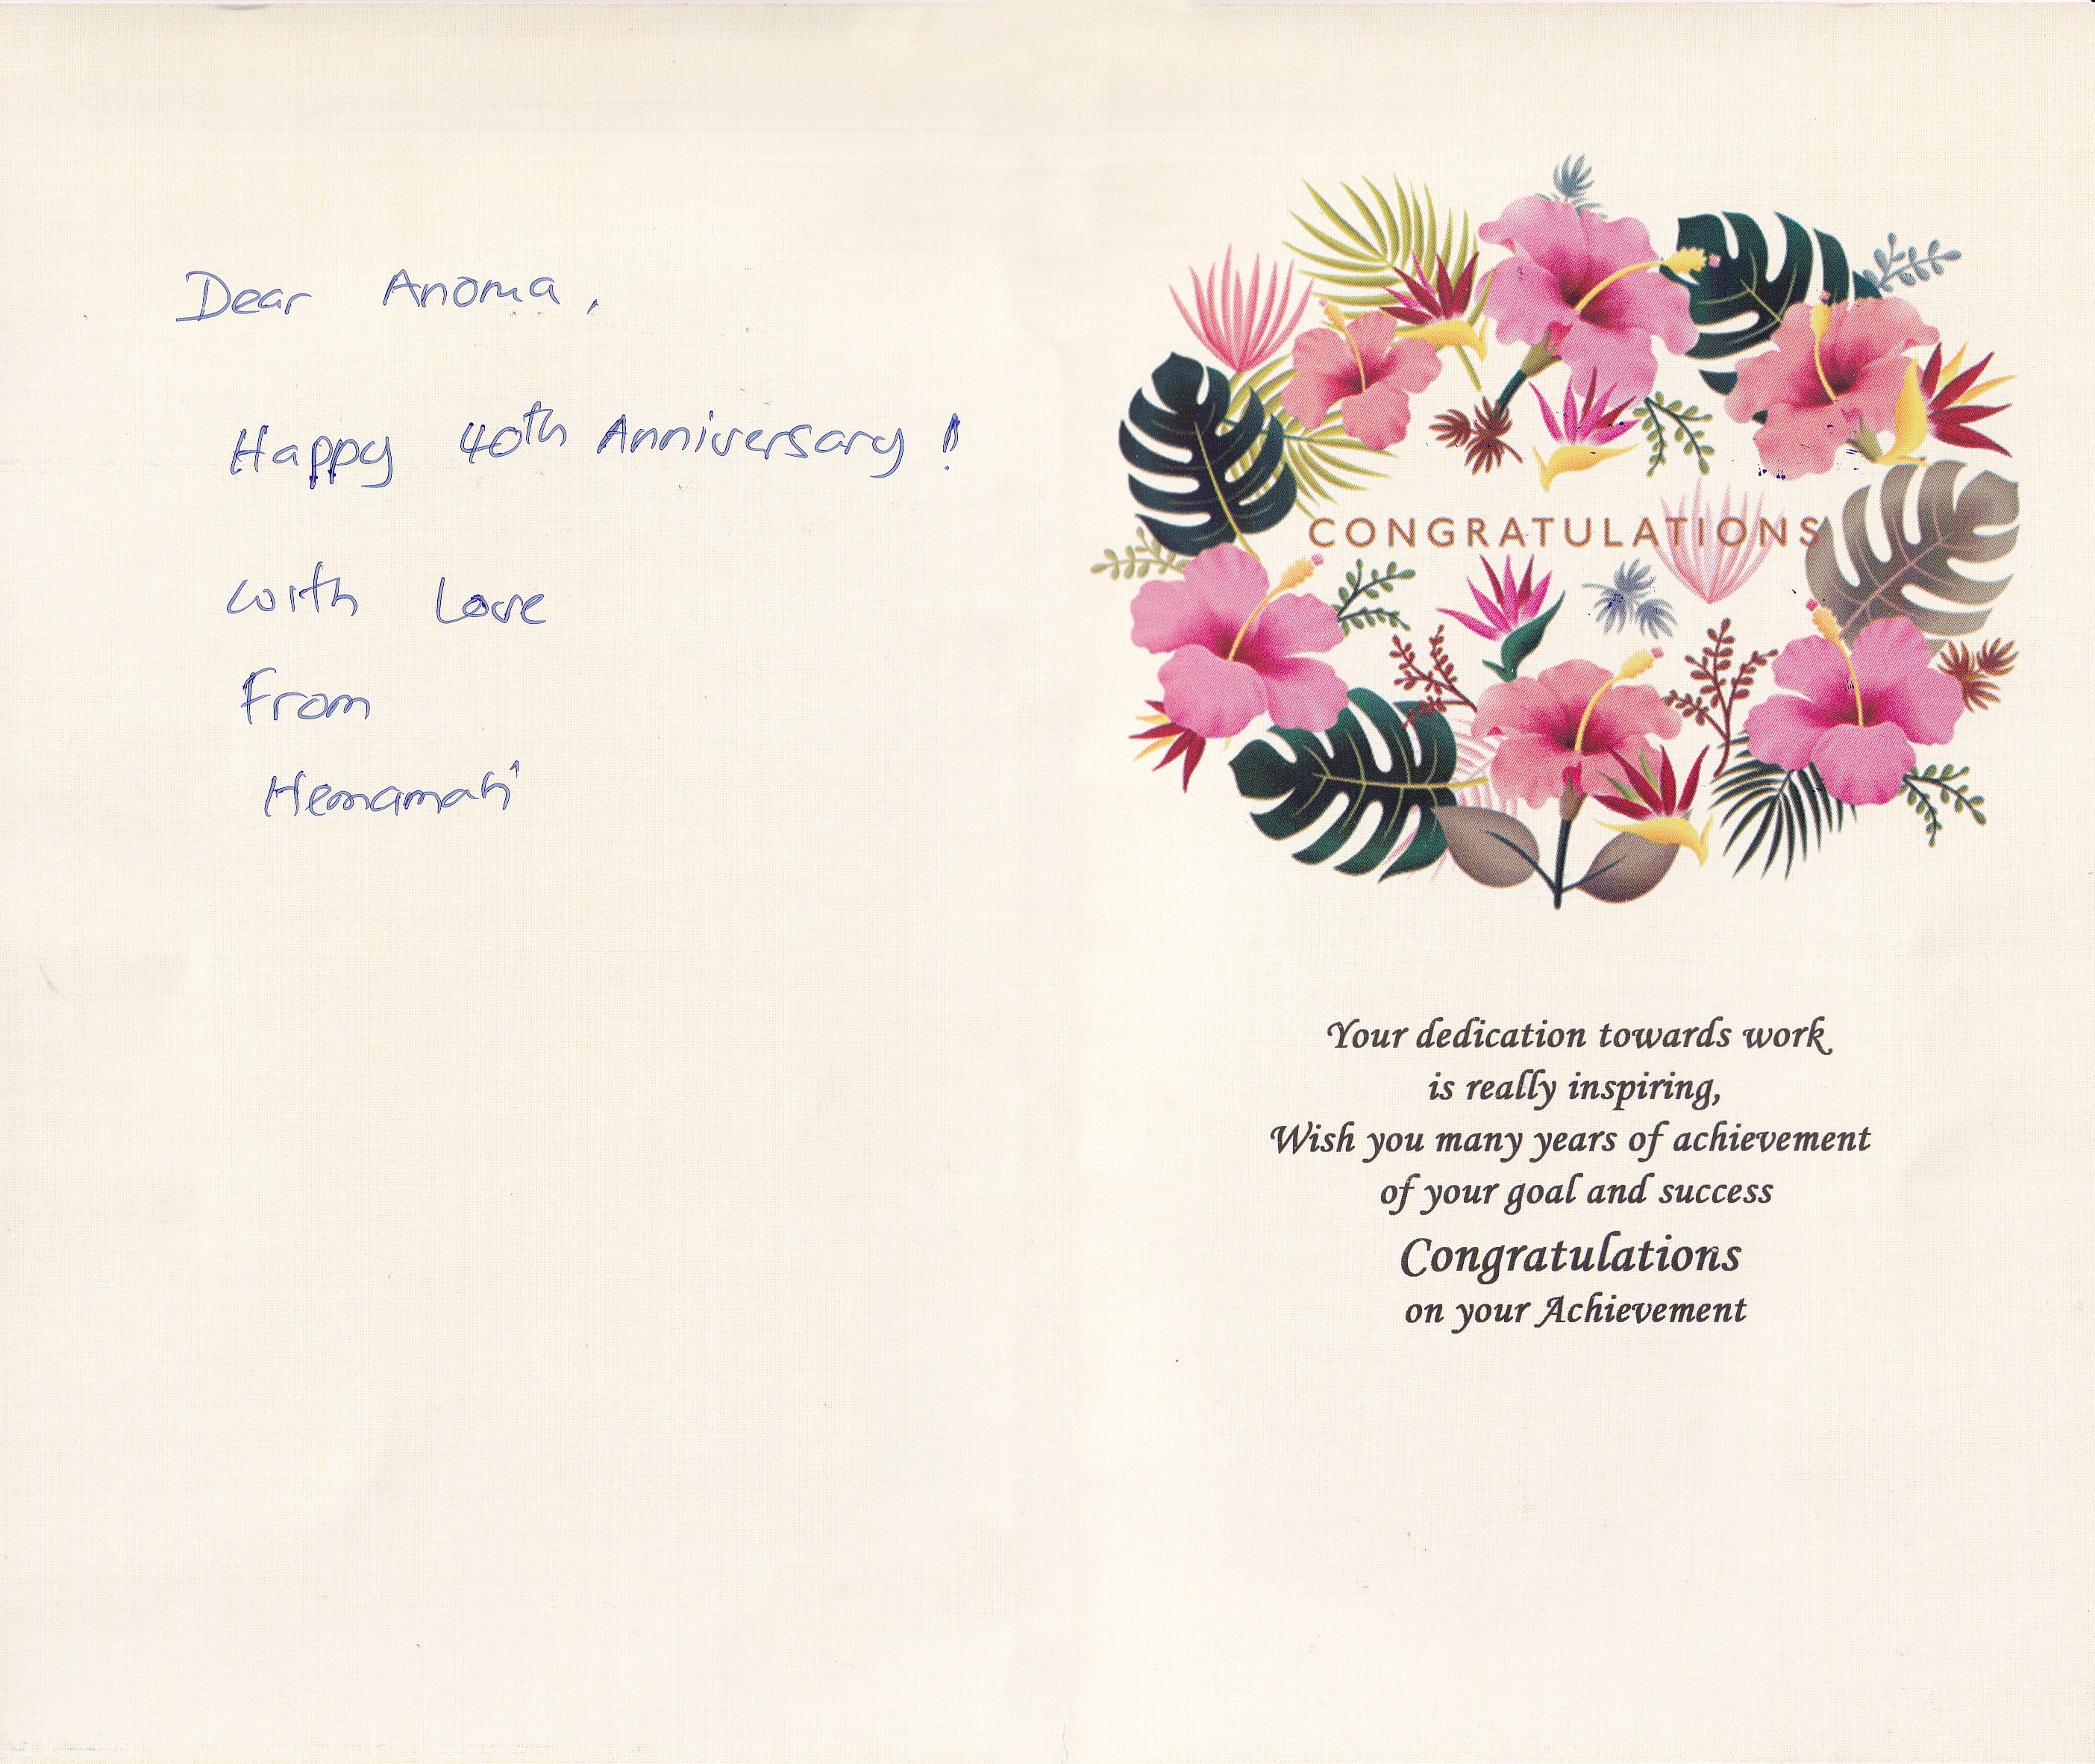 Dear Anoma,
Happy 40th Anniversary!
with Love
From
CONGRATULATIONS
Your dedication towards work
is really inspiring,
Wish you many years of achievement
of your goal and success
Congratulations
on your Achievement